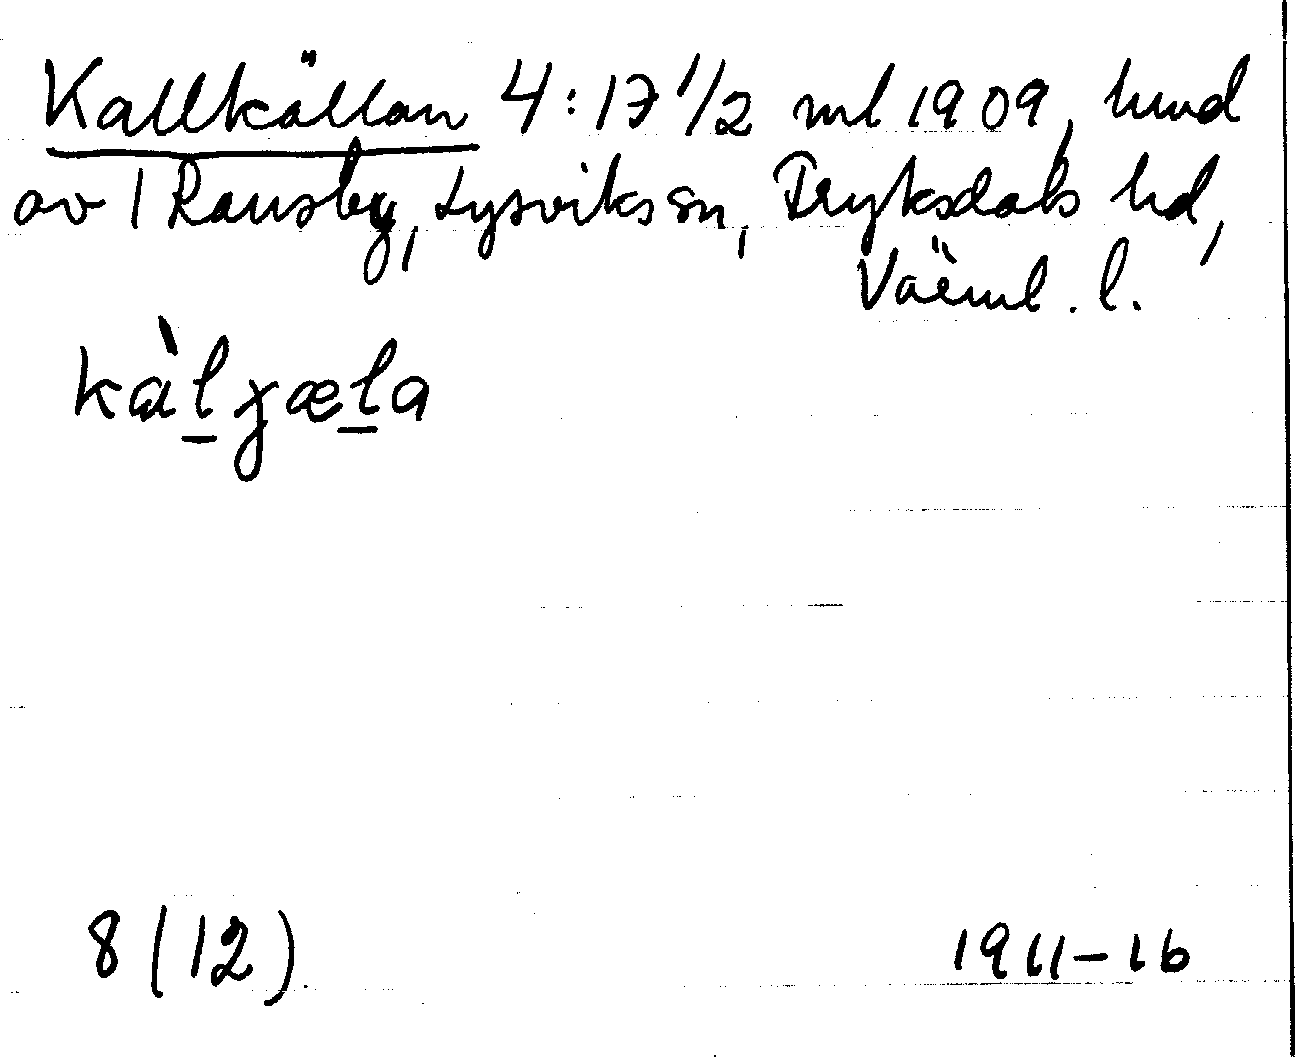 Kallkällan 4:17 1/2 ml 1909, hmd
av 1 Ransby, Lysviks sn, Fryksdals hd,
Värml. l.
kàl̲ɣæl̲a
8 (12).
1911–16